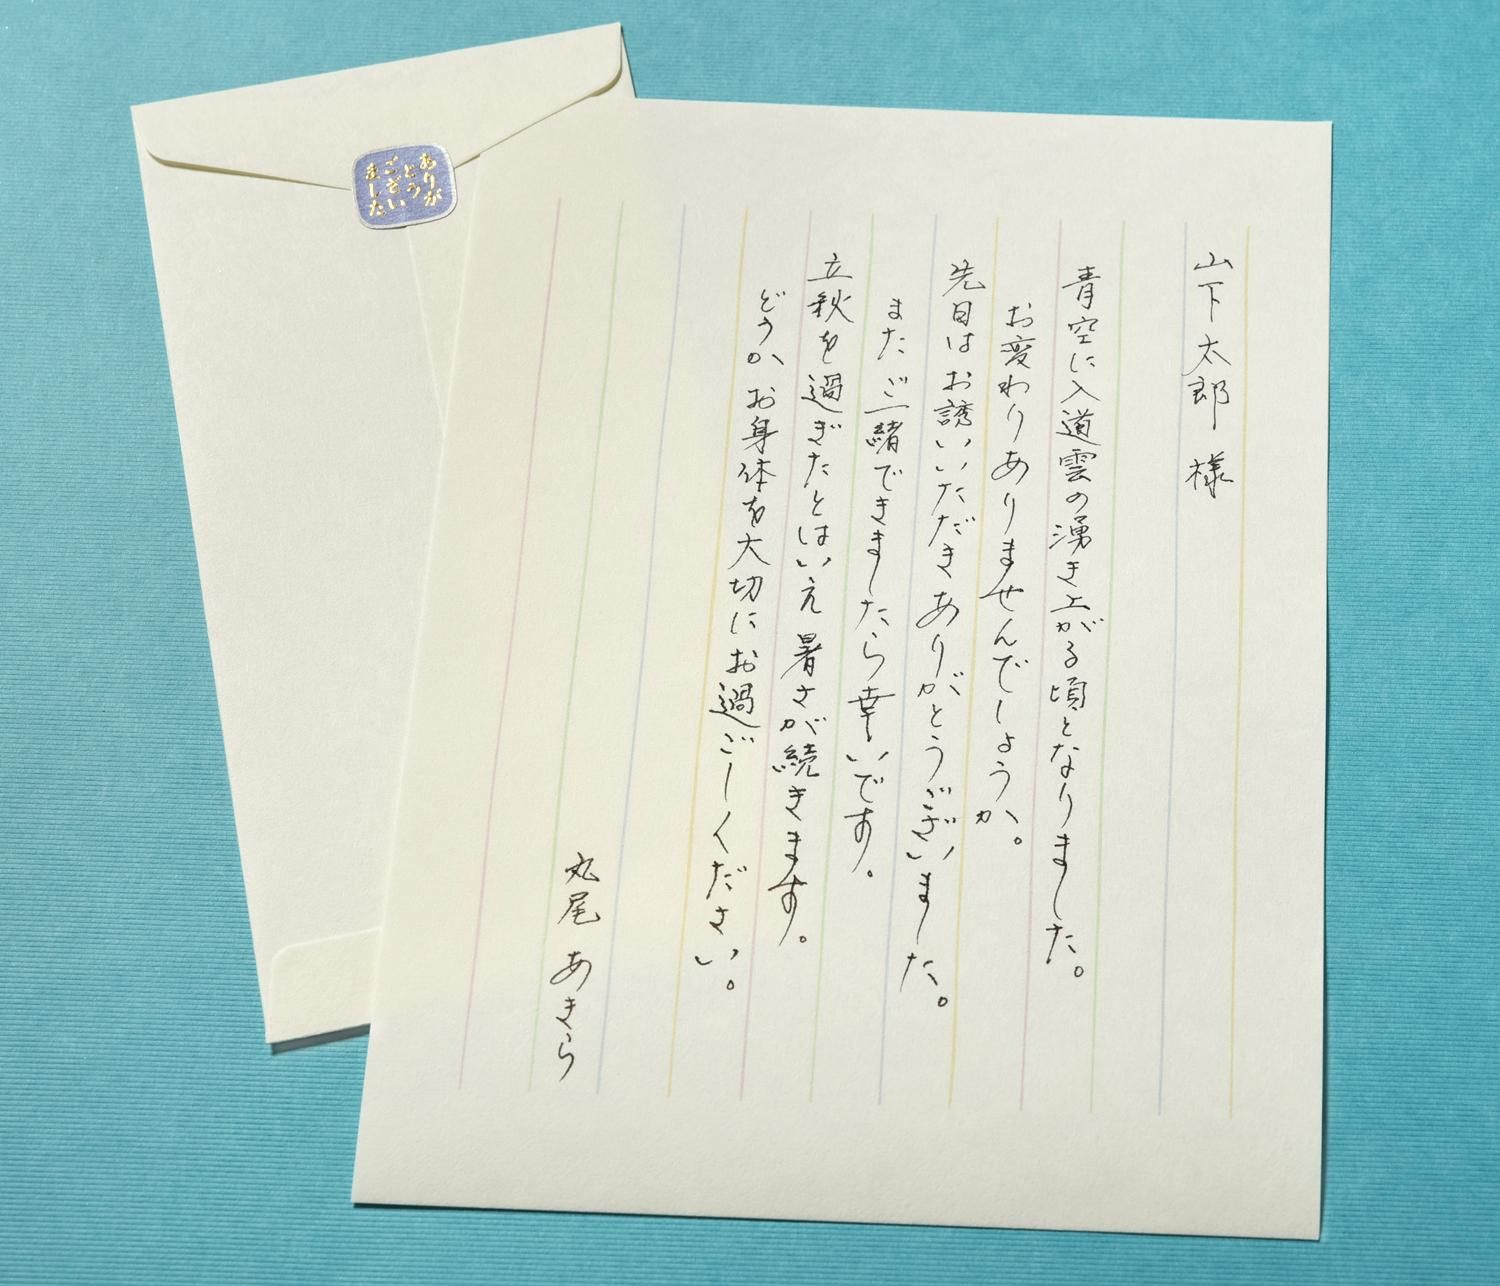 ありが
とう
ござい
ました
山下太郎 様
青空に入道雲の湧き上がる頃となりました。
お変わりありませんでしょうか。
先日はお誘いいただきありがとうございました。
またご一緒できましたら幸いです。
立秋を過ぎたとはいえ 暑さが続きます。
どうか、お身体を大切にお過ごしください。
丸尾 あきら